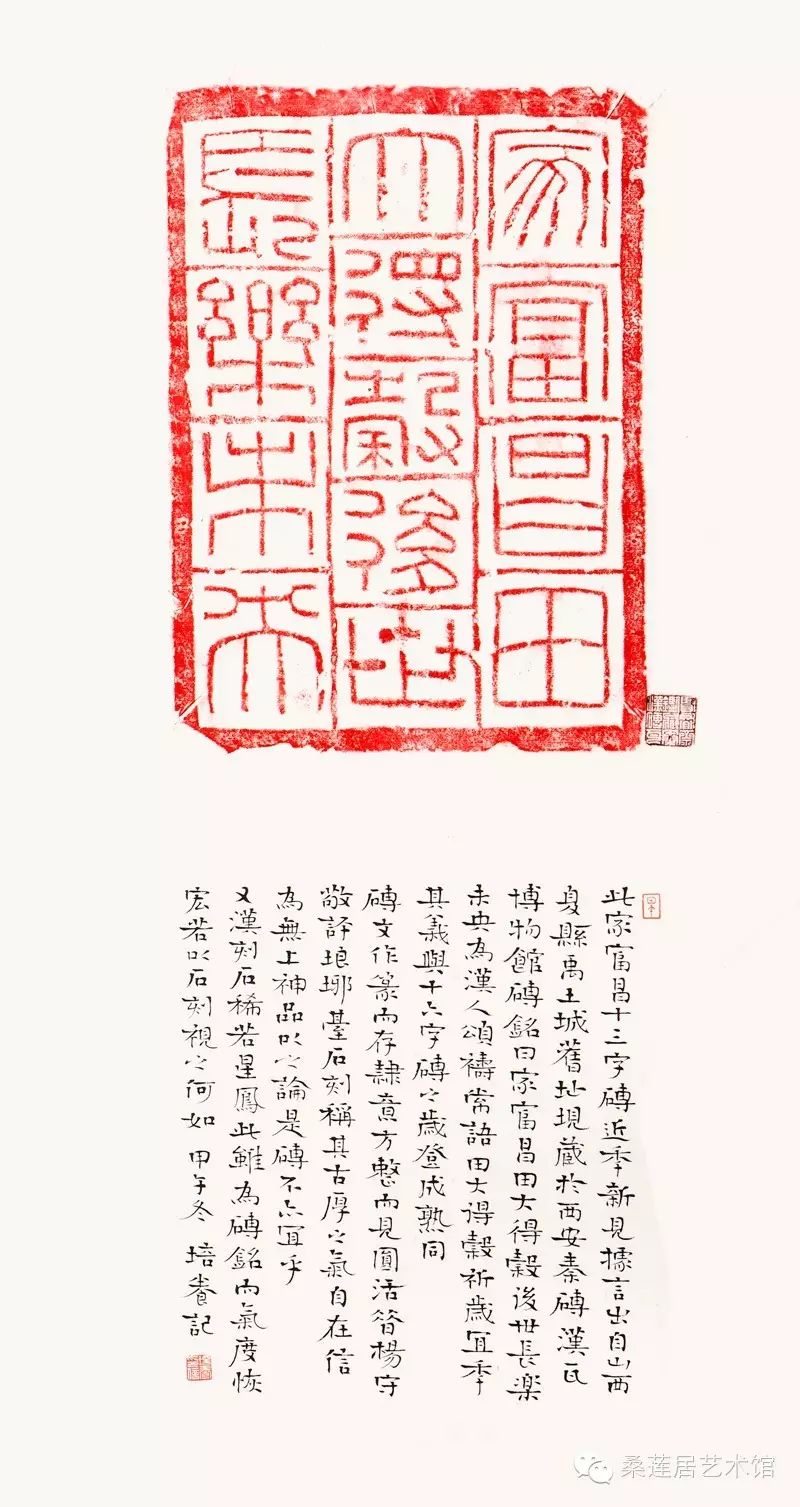 家富昌田
大得穀後世
長樂未央
此家富昌十三字磚近季新見據言出自山西
夏縣禹王城舊址現藏於西安秦磚漢瓦
博物館磚銘曰家富昌田大得穀後世長楽
未央為漢人頌禱常語田大得穀祈歲宜季
其義與十六字磚之歲登成熟同
磚文作篆而存隸意方整而見圓活昝楊守
敬評琅邪臺石刻稱其古厚之氣自在信
為無上神品以之論是磚不亦宜乎
又漢刻石稀若星鳳此雖為磚銘而氣度恢
宏若以石刻視之何如 甲午冬 培養記
桑莲居艺术馆